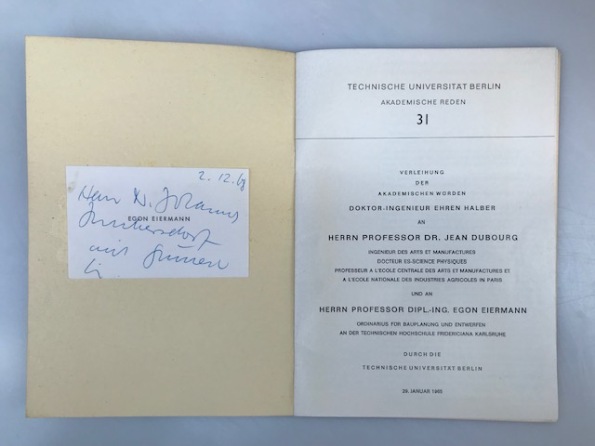 2.12.68
Herrn Dr. Johannes
EGON EIERMANN
mit Grüssen
TECHNISCHE UNIVERSITÄT BERLIN
AKADEMISCHE REDEN
31
VERLEIHUNG
DER
AKADEMISCHEN WÜRDEN
DOKTOR-INGENIEUR EHREN HALBER
AN
HERRN PROFESSOR DR. JEAN DUBOURG
INGENIEUR DES ARTS ET MANUFACTURES
DOCTEUR ES-SCIENCE PHYSIQUES
PROFESSEUR A L'ECOLE CENTRALE DES ARTS ET MANUFACTURES ET
A L'ECOLE NATIONALE DES INDUSTRIES AGRICOLES IN PARIS
UND AN
HERRN PROFESSOR DIPL.-ING. EGON EIERMANN
ORDINARIUS FÜR BAUPLANUNG UND ENTWERFEN
AN DER TECHNISCHEN HOCHSCHULE FRIDERICIANA KARLSRUHE
DURCH DIE
TECHNISCHE UNIVERSITÄT BERLIN
29. JANUAR 1965